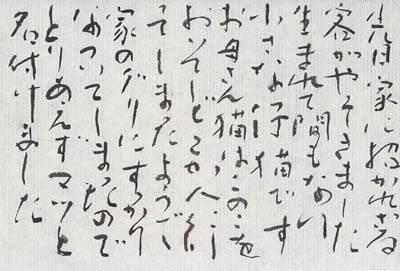 先日家に招かれざる
客がやってきました
生まれて間もない
小さな子猫です
お母さん猫はこのこを
おいてどこかへ行っ
てしまったようで
家のダリにすっかり
なついてしまったので
とりあえずマツと
名付けました